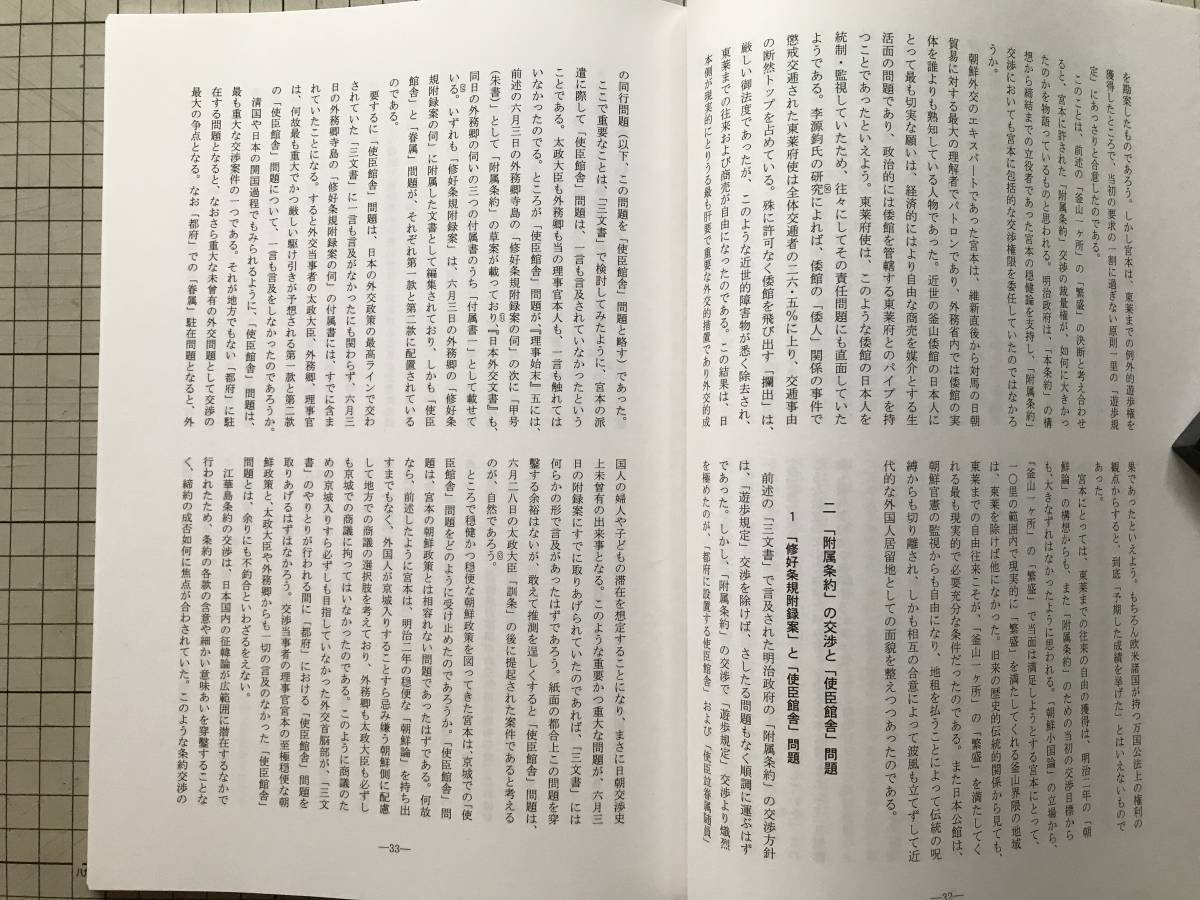 を勘案したものであろう。しかし宮本は、東莱までの例外的遊歩権を
獲得したところで、当初の要求の一割に過ぎない原則一里の「遊歩規
定」にあっさりと合意したのである。
このことは、前述の「釜山一ヶ所」の「繁盛」の決断と考え合わせ
ると、宮本に許された「附属条約」交渉の裁量権が、如何に大きかっ
たのかを物語っているものと思われる。明治政府は、「本条約」の構
想から締結までの立役者であった宮本の穏健論を支持し、「附属条約」
交渉においても宮本に包括的な交渉権限を委任していたのではなかろ
うか。
朝鮮外交のエキスパートであった宮本は、維新直後から対馬の日朝
貿易に対する最大の理解者でパトロンであり、外務省内では倭館の実
体を誰よりも熟知している人物であった。近世の釜山倭館の日本人に
とって最も切実な願いは、経済的にはより自由な商売を媒介とする生
活面の問題であり、政治的には倭館を管轄する東莱府とのパイプを持
つことであったといえよう。東莱府使は、このような倭館の日本人を
統制・監視していたため、往々にしてその責任問題にも直面していた
ようである。李源鈞氏の研究によれば、倭館の「倭人」関係の事件で
懲戒交逓された東莱府使は全体交逓者の二六・五％に上り、交逓事由
の断然トップを占めている。殊に許可なく倭館を飛び出す「攔出」は、
厳しい御法度であったが、このような近世的障害物が悉く除去され、
東莱までの往来および商売が自由になったのである。この結果は、日
本側が現実的にとりうる最も肝要で重要な外交的措置であり外交的成
果であったといえよう。もちろん欧米諸国が持つ万国公法上の権利の
観点からすると、到底「予期した成績を挙げた」とはいえないもので
あった。
宮本にとっては、東莱までの往来の自由の獲得は、明治二年の「朝
鮮論」の構想からも、また「附属条約」のための当初の交渉目標から
も、大きなずれはなかったように思われる。「朝鮮小国論」の立場から、
「釜山一ヶ所」の「繁盛」で当面は満足しようとする宮本にとって、
一〇里の範囲内で現実的に「繁盛」を満たしてくれる釜山界隈の地域
は、東莱を除けば他になかった。旧来の歴史的伝統的関係から見ても、
東莱までの自由往来こそが、「釜山一ヶ所」の「繁盛」を満たしてく
れる最も現実的で必要充分な条件だったのである。また日本公館は、
朝鮮官憲の監視からも自由になり、地租を払うことによって伝統の呪
縛からも切り離され、しかも相互の合意によって波風も立てずして近
代的な外国人居留地としての面貌を整えつつあったのである。
二　「附属条約」の交渉と「使臣館舎」問題
1　「修好条規附録案」と「使臣館舎」問題
前述の「三文書」で言及された明治政府の「附属条約」の交渉方針
は、「遊歩規定」交渉を除けば、さしたる問題もなく順調に運ぶはず
であった。しかし、「附属条約」の交渉で「遊歩規定」交渉より熾烈
を極めたのが、「都府に設置する使臣館舎」および「使臣並眷属随員」
―32―
の同行問題（以下、この問題を「使臣館舎」問題と略す）であった。
ここで重要なことは、「三文書」で検討してみたように、宮本の派
遣に際して「使臣館舎」問題は、一言も言及されていなかったという
ことである。太政大臣も外務卿も当の理事官本人も、一言も触れては
いなかったのでる。ところが「使臣館舎」問題が『理事始末』五には、
前述の六月三日の外務卿寺島の「修好条規附録案の伺」の次に「甲号
（朱書）」として「附属条約」の草案が載っており『日本外交文書』も、
同日の外務卿の伺いの三つの付属書のうち「付属書一」として載せて
いる。いずれも「修好条規附録案」は、六月三日の外務卿の「修好条
規附録案の伺」に附属した文書として編集されており、しかも「使臣
館舎」と「眷属」問題が、それぞれ第一款と第二款に配置されている
のである。
要するに「使臣館舎」問題は、日本の外交政策の最高ラインで交わ
されていた「三文書」に一言も言及がなかったにも関わらず、六月三
日の外務卿寺島の「修好条規附録案の伺」の付属書には、すでに含ま
れていたことになる。すると外交当事者の太政大臣、外務卿、理事官
は、何故最も重大でかつ厳しい駆け引きが予想される第一款と第二款
の「使臣館舎」問題について、一言も言及をしなかったのであろうか。
清国や日本の開国過程でもみられるように、「使臣館舎」問題は、
最も重大な交渉案件の一つである。それが地方でもない「都府」に駐
在する問題となると、なおさら重大な未曾有の外交問題として交渉の
最大の争点となる。なお「都府」での「眷属」駐在問題となると、外
国人の婦人や子どもの滞在を想定することになり、まさに日朝交渉史
上未曾有の出来事となる。このような重要かつ重大な問題が、六月三
日の附録案にすでに取りあげられていたのであれば、「三文書」には
何らかの形で言及があったはずであろう。紙面の都合上この問題を穿
鑿する余裕はないが、敢えて推測を逞しくすると「使臣館舎」問題は、
六月二八日の太政大臣「訓条」の後に提起された案件であると考える
のが、自然であろう。
ところで穏健かつ穏便な朝鮮政策を図ってきた宮本は、京城での「使
臣館舎」問題をどのように受け止めたのであろうか。「使臣館舎」問
題は、宮本の朝鮮政策とは相容れない問題であったはずである。何故
なら、前述したように宮本は、明治二年の穏便な「朝鮮論」を持ち出
すまでもなく、外国人が京城入りすることすら忌み嫌う朝鮮側に配慮
して地方での商議の選択肢を考えており、外務卿も太政大臣も必ずし
も京城での商議に拘ってはいなかったのである。このように商議のた
めの京城入りすら必ずしも目指していなかった外交首脳部が、「三文
書」のやりとりが行われる間に「都府」における「使臣館舎」問題を
取りあげるはずはなかろう。交渉当事者の理事官宮本の至極穏便な朝
鮮政策と、太政大臣や外務卿からも一切の言及のなかった「使臣館舎」
問題とは、余りにも不釣合といわざるをえない。
江華島条約の交渉は、日本国内の征韓論が広範囲に潜在するなかで
行われたため、条約の各款の含意や細かい意味あいを穿鑿することな
く、締約の成否如何に焦点が合わされていた。このような条約交渉の
―33―